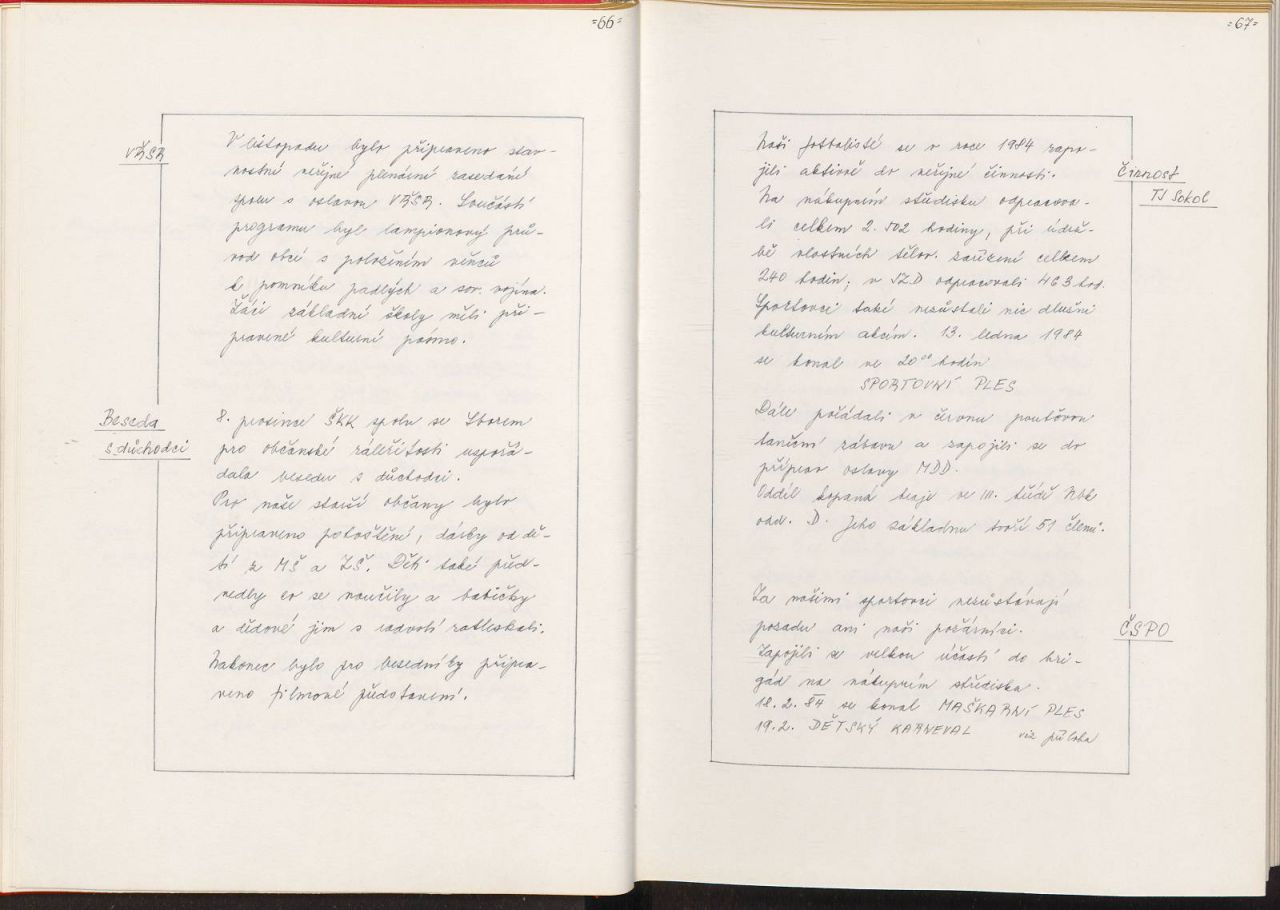 =66=
VŘSR
V listopadu bylo připraveno slav-
nostní veřejné plenární zasedání
spolu s oslavou VŘSR. Součástí
programu byl lampionový prů-
vod obcí s položením věnců
k pomníku padlých a sov. vojína.
Žáci základní školy měli při-
pravené kulturní pásmo.
Beseda
s důchodci
8. prosince ŠKK spolu se Sborem
pro občanské záležitosti uspořá-
dala besedu s důchodci.
Pro naše starší občany bylo
připraveno pohoštění, dárky od dě-
tí z MŠ a ZŠ. Děti také před-
vedly co se naučily a babičky
a dědové jim s radostí zatleskali.
Nakonec bylo pro besedníky připra-
veno filmové představení.
=67=
Činnost
TJ Sokol
Naši fotbalisté se v roce 1984 zapo-
jili aktivně do veřejné činnosti.
Na nákupním středisku odpracova-
li celkem 2.502 hodiny, při údrž-
bě vlastních tělov. zařízení celkem
240 hodin; v JZD odpracovali 463 hod.
Sportovci také nezůstali nic dlužni
kulturním akcím. 13. ledna 1984
se konal ve 20⁰⁰ hodin
SPORTOVNÍ PLES
Dále pořádali v červnu pouťovou
taneční zábavu a zapojili se do
příprav oslavy MDD.
Oddíl kopaná hraje ve III. třídě
odd. D. Jeho základnu tvoří 51 členů.
ČSPO
Za našimi sportovci nezůstávají
pozadu ani naši požárníci.
Zapojili se velkou účastí do bri-
gád na nákupním středisku.
18.2.84 se konal MAŠKARNÍ PLES
19.2. DĚTSKÝ KARNEVAL viz příloha